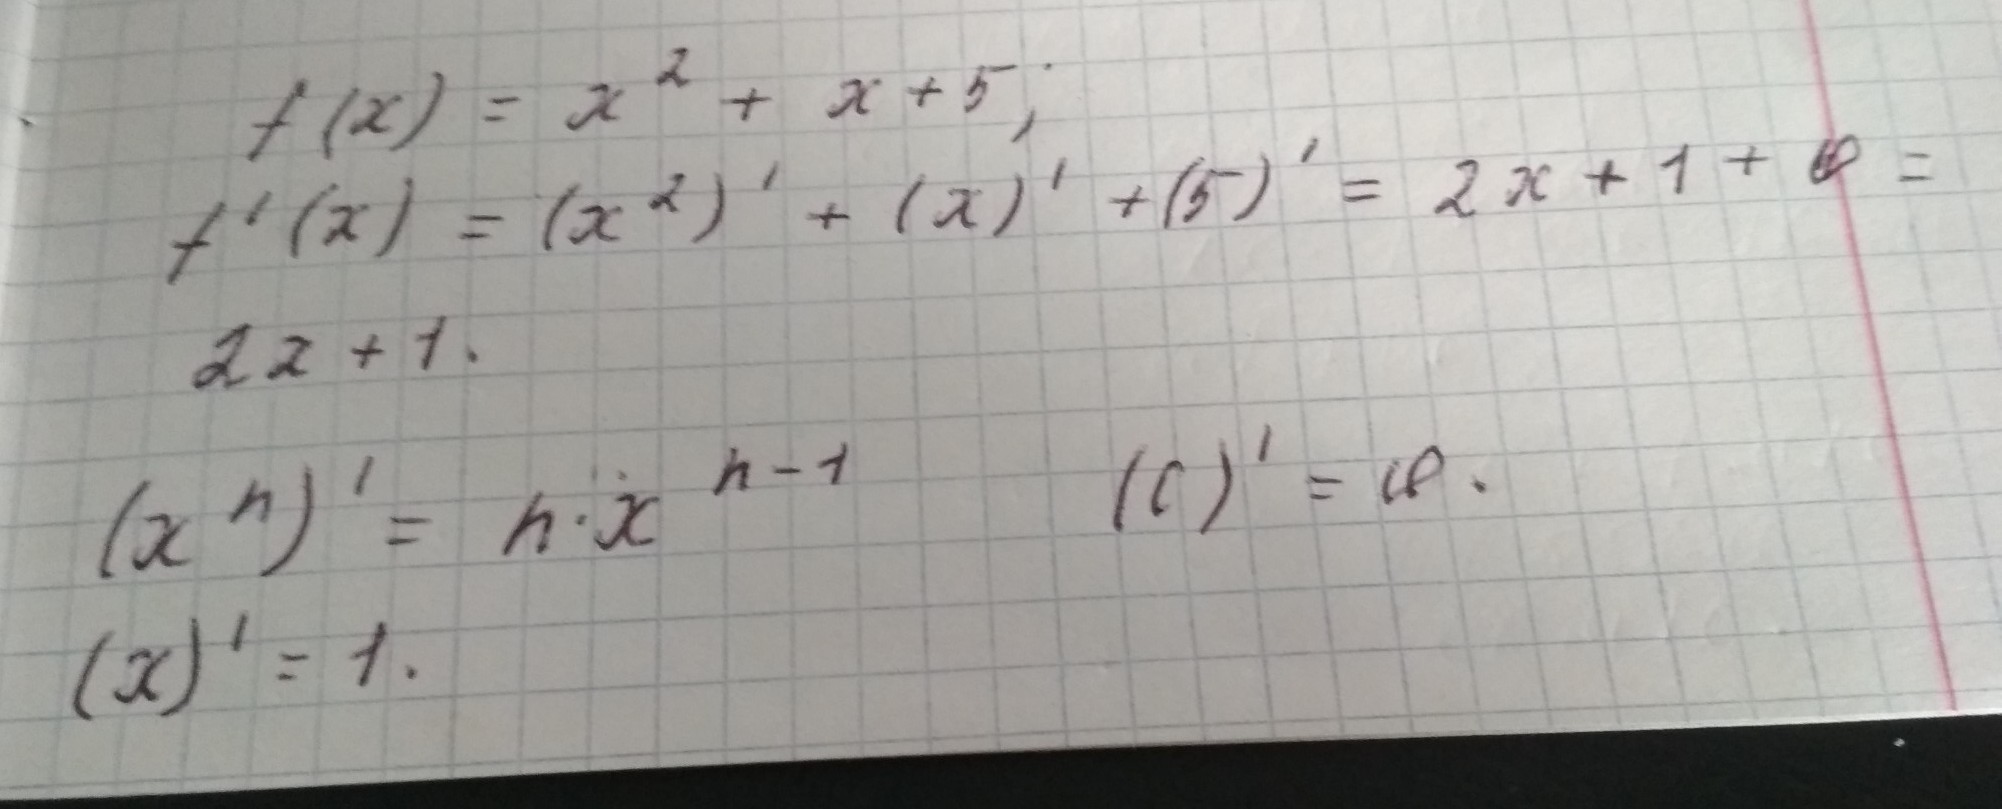 f(x) = x² + x + 5;
f'(x) = (x²)' + (x)' + (5)' = 2x + 1 + 0 =
2x + 1.
(xⁿ)' = n·xⁿ⁻¹ (c)' = 0.
(x)' = 1.